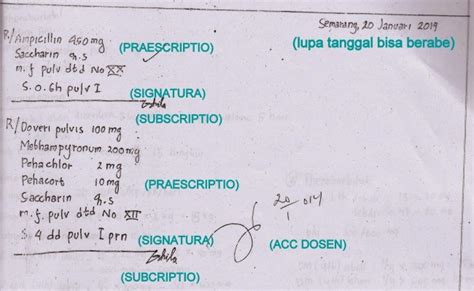 Semarang, 20 Januari 2019
(lupa tanggal bisa berabe)
R/ Ampicillin 450 mg
Saccharin q.s (PRAESCRIPTIO)
m.f pulv dtd No XX
S. o. 6h pulv I (SIGNATURA)
(SUBSCRIPTIO)
R/ Doveri pulvis 100 mg
Methampyronum 200 mg
Pehachlor 2 mg
Pehacort 10 mg (PRAESCRIPTIO)
Saccharin q.s
m.f. pulv dtd No XII
20/1 014
S. 4 dd pulv I prn (SIGNATURA) (ACC DOSEN)
(SUBCRIPTIO)